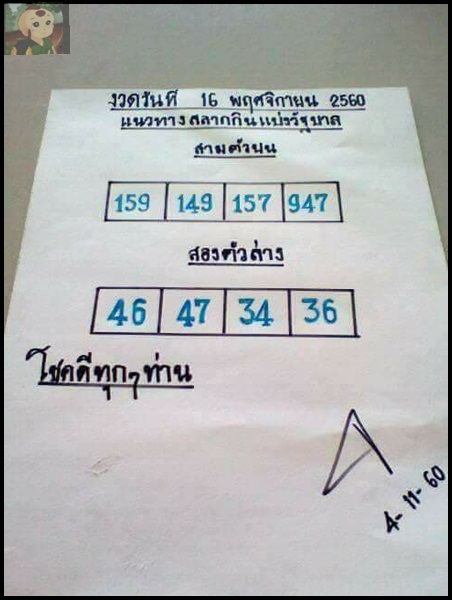 งวดวันที่ 16 พฤศจิกายน 2560
แนวทางสลากกินแบ่งรัฐบาล
สามตัวบน
159 149 157 947
สองตัวล่าง
46 47 34 36
โชคดีทุกๆท่าน
4-11-60